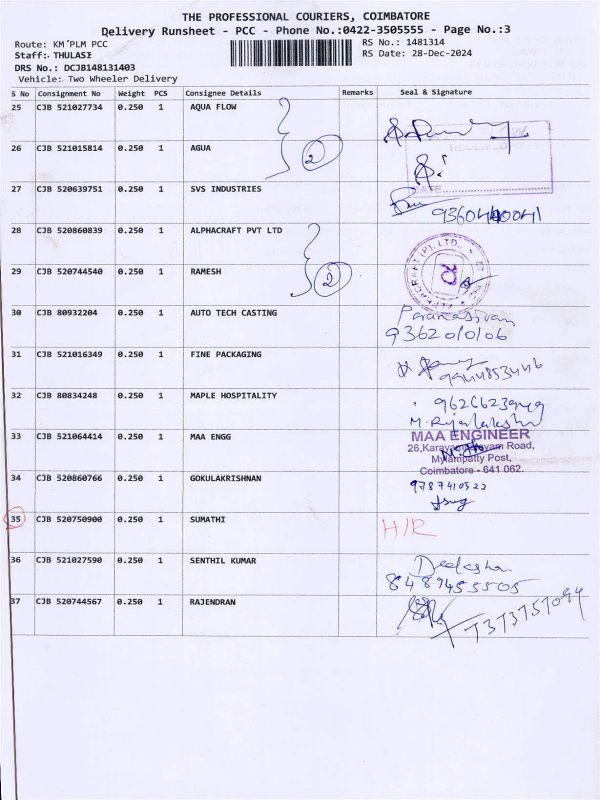 THE PROFESSIONAL COURIERS, COIMBATORE
Delivery Runsheet - PCC - Phone No.:0422-3505555 - Page No.:3
Route: KM PLM PCC
RS No.: 1481314
Staff: THULASI
RS Date: 28-Dec-2024
DRS No.: DCJB148131403
Vehicle: Two Wheeler Delivery
S No Consignment No Weight PCS Consignee Details Remarks Seal & Signature
25 CJB 521027734 0.250 1 AQUA FLOW
26 CJB 521015814 0.250 1 AGUA 2
DATE
27 CJB 520639751 0.250 1 SVS INDUSTRIES
28 CJB 520860839 0.250 1 ALPHACRAFT PVT LTD
29 CJB 520744540 0.250 1 RAMESH 2
30 CJB 80932204 0.250 1 AUTO TECH CASTING
Paramasivam
9362010106
31 CJB 521016349 0.250 1 FINE PACKAGING
9944853446
32 CJB 80834248 0.250 1 MAPLE HOSPITALITY
33 CJB 521064414 0.250 1 MAA ENGG
MAA ENGINEER
Mylampatty Post,
Coimbatore - 641 062.
34 CJB 520860766 0.250 1 GOKULAKRISHNAN
9787410522
35 CJB 520750900 0.250 1 SUMATHI H/R
36 CJB 521027590 0.250 1 SENTHIL KUMAR
8489455505
37 CJB 520744567 0.250 1 RAJENDRAN